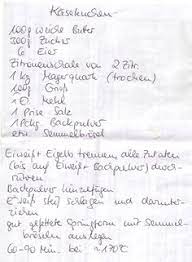 Käsekuchen
100g weiche Butter
300g Zucker
6 Eier
Zitronenschale von 2 Zitr.
1 kg Magerquark (trocken)
100g Grieß
1 El. Mehl
1 Prise Salz
1 Pckg Backpulver
etw. Semmelbrösel
Eiweiß Eigelb trennen, alle Zutaten
(bis auf Eiweiß + Backpulver) durch-
rühren
Backpulver hinzufügen
Eiweiß steif schlagen und darunter-
ziehen
gut gefettete Springform mit Semmel-
bröseln auslegen
60-90 Min. bei ~170°C